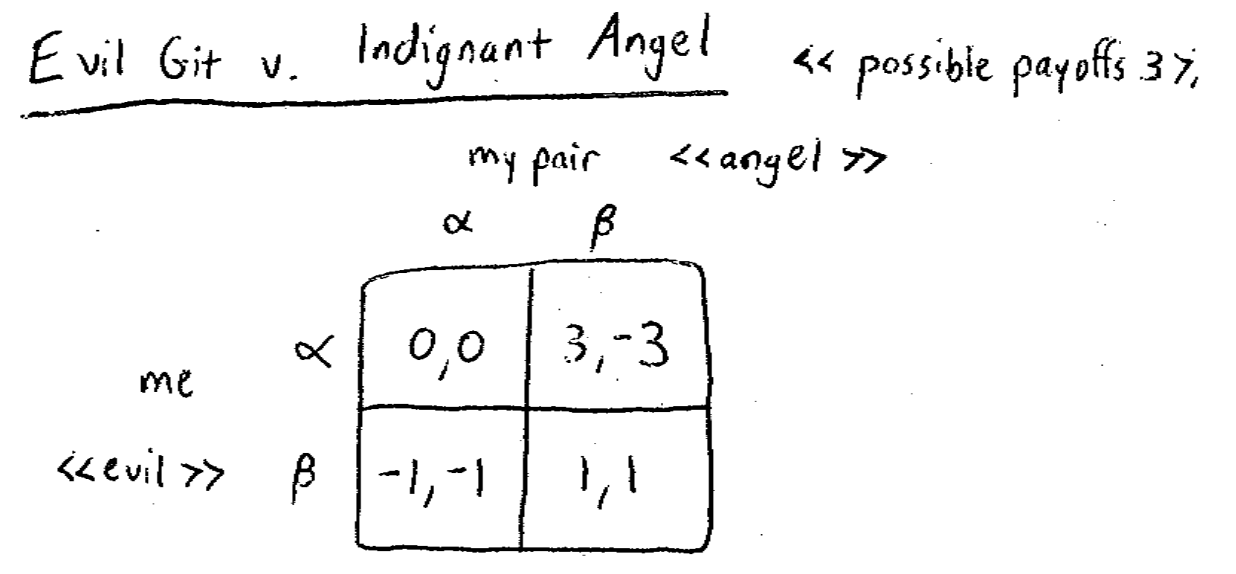 Evil Git v. Indignant Angel << possible payoffs 3 >;
my pair <<angel>>
α β
α 0,0 3,-3
me
<<evil>> β -1,-1 1,1